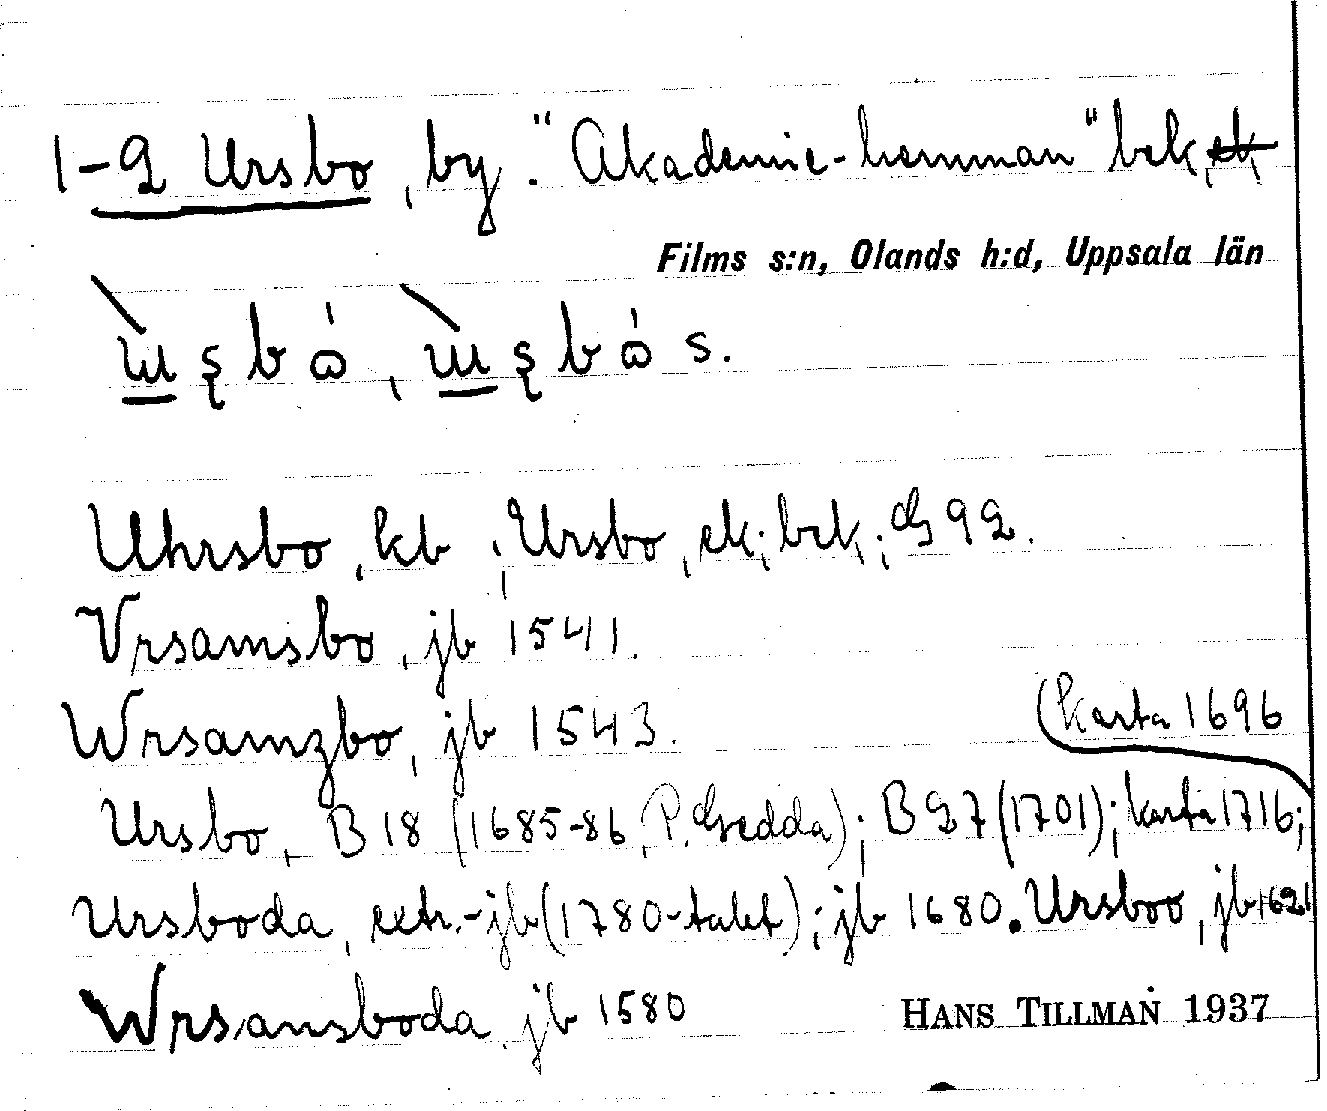 1-2 Ursbo, by. "Akademie-hemman" bek, ek,
Films s:n, Olands h:d, Uppsala län
Uhrsbo, kb ; Ursbo, ek; bek; G 92.
Vrsamsbo, jb 1541.
Wrsamzbo, jb 1543.
(karta 1696
Ursbo, B 18 (1685-86, P. Gedda); B 27 (1701); karta 1716;
Ursboda, extr.-jb (1780-talet); jb 1680. Ursboo, jb 1621
Wrsansboda, jb 1580
HANS TILLMAN 1937